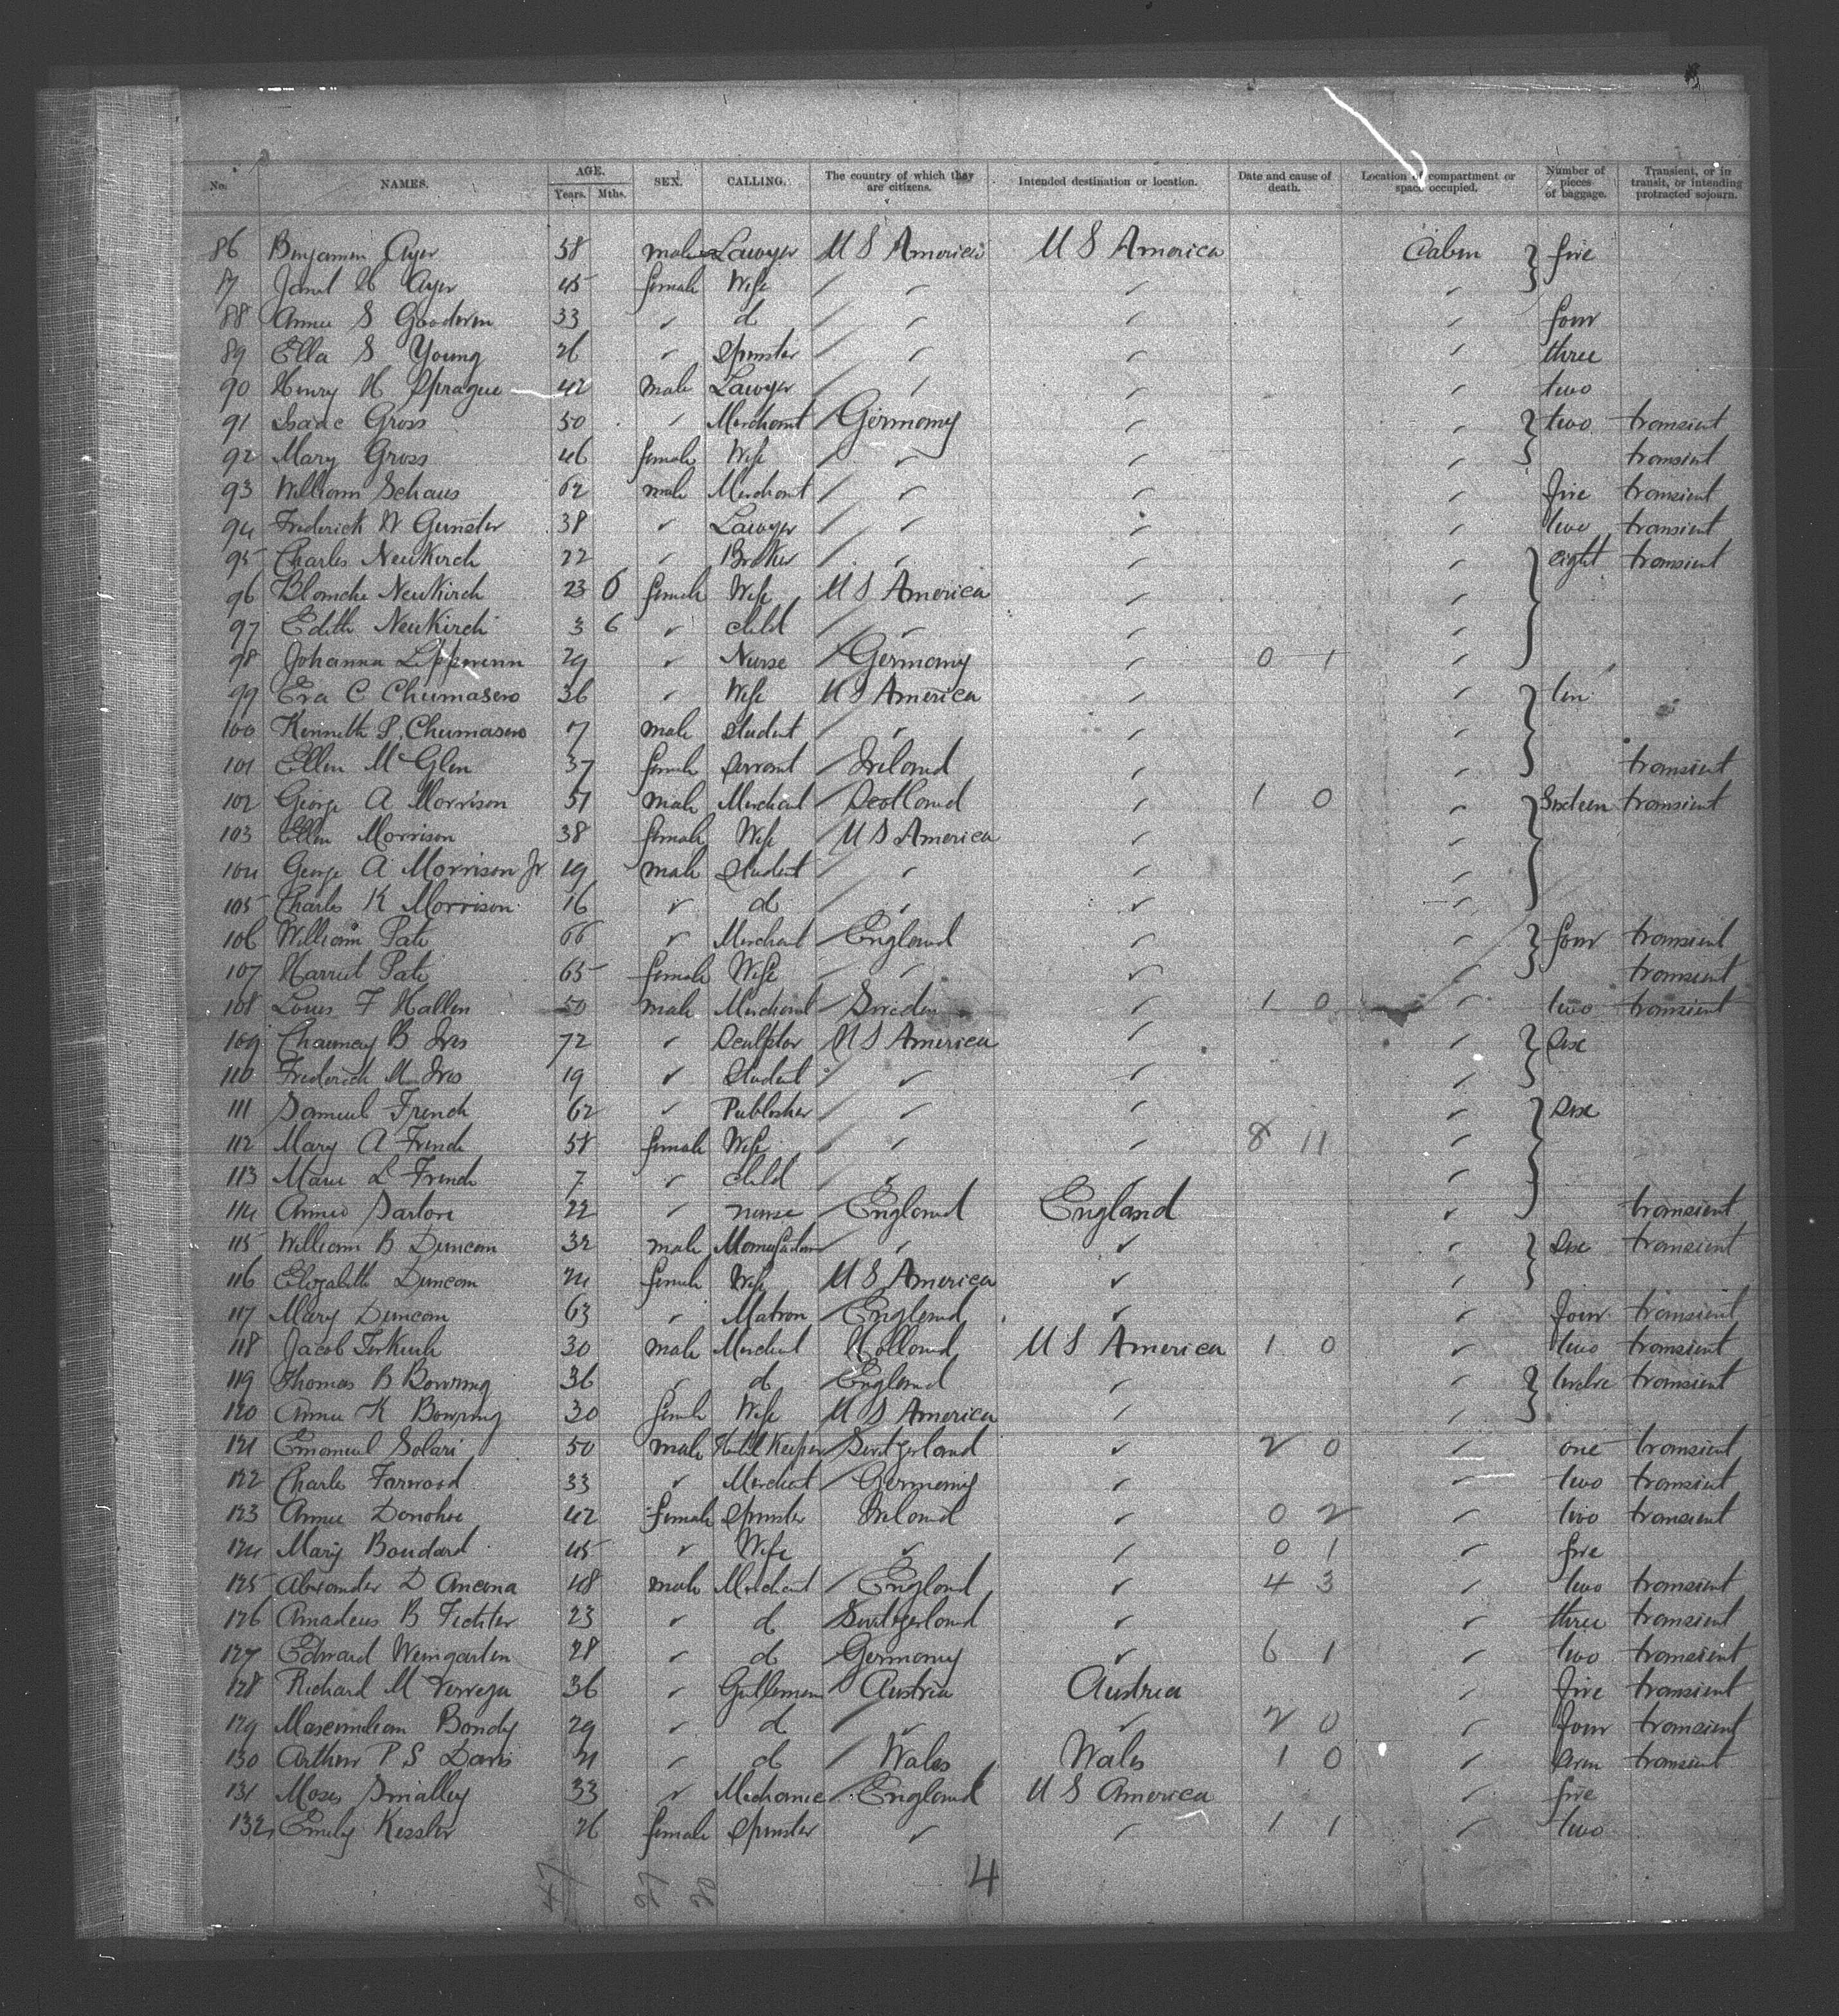 No. NAMES. AGE. Years. Mths. SEX. CALLING. The country of which they are citizens. Intended destination or location. Date and cause of death. Location of compartment or space occupied. Number of pieces of baggage. Transient, or in transit, or intending protracted sojourn.
86 Benjamin Ayer 58 male Lawyer U S America U S America Cabin } five
87 Janet H Ayer 45 female Wife / ✓ ✓ ✓
88 Annie S Gooderin 33 ✓ d / ✓ ✓ ✓ four
89 Ella S Young 26 ✓ Spinster / ✓ ✓ ✓ three
90 Henry H Sprague 42 male Lawyer / ✓ ✓ two
91 Isaac Gross 50 ✓ Merchant / Germany ✓ ✓ } two transient
92 Mary Gross 46 female Wife / ✓ ✓ ✓ transient
93 William Schaus 62 male Merchant / ✓ ✓ ✓ five transient
94 Frederick W Gunster 38 ✓ Lawyer / ✓ ✓ ✓ two transient
95 Charles NeuKirch 22 ✓ Broker / ✓ ✓ ✓ } eight transient
96 Blanche NeuKirch 23 6 female Wife U S America ✓ ✓
97 Edith NeuKirch 3 6 ✓ child / ✓ ✓ ✓
98 Johanna Lippmann 29 ✓ Nurse / Germany ✓ 0 1 ✓
99 Eva C Chumasero 36 ✓ Wife U S America ✓ ✓ } ten
100 Kenneth P. Chumasero 7 male Student / ✓ ✓ ✓
101 Ellen McGlen 37 female Servant / Ireland ✓ ✓ transient
102 George A Morrison 51 male Merchant / Scotland ✓ 1 0 ✓ } Sixteen transient
103 Ellen Morrison 38 female Wife / U S America ✓ ✓
104 George A Morrison Jr 19 male Student / ✓ ✓ ✓
105 Charles K Morrison 16 ✓ d / ✓ ✓ ✓
106 William Pate 66 ✓ Merchant / England ✓ ✓ } four transient
107 Harriet Pate 65 female Wife / ✓ ✓ ✓ transient
108 Louis F Hallen 50 male Merchant / Sweden ✓ 1 0 ✓ two transient
109 Chauncey B Ives 72 ✓ Sculptor / U S America ✓ ✓ } Six
110 Frederick M Ives 19 ✓ Student / ✓ ✓ ✓
111 Samuel French 62 ✓ Publisher / ✓ ✓ ✓ } Six
112 Mary A French 58 female Wife / ✓ ✓ 8 11 ✓
113 Marie L French 7 ✓ child / ✓ ✓ ✓
114 Annie 22 ✓ nurse / England England ✓ transient
115 William B Duncan 32 male / ✓ ✓ ✓ } Six transient
116 Elizabeth Duncan 24 female Wife U S America ✓ ✓
117 Mary Duncan 63 ✓ Matron / England ✓ ✓ four transient
118 Jacob 30 male Merchant Holland U S America 1 0 ✓ two transient
119 Thomas B Bowring 36 ✓ d / England ✓ ✓ } twelve transient
120 Annie K Bowring 30 female Wife U S America ✓ ✓
121 Emanuel Solari 50 male Hotel Keeper Switzerland ✓ 2 0 ✓ one transient
122 Charles Farwood 33 ✓ Merchant Germany ✓ ✓ two transient
123 Annie Donohoe 42 female Spinster Ireland ✓ 0 2 ✓ two transient
124 Mary Boudard 45 ✓ Wife ✓ ✓ 0 1 ✓ five
125 Alexander D Ancona 48 male Merchant / England ✓ 4 3 ✓ two transient
126 Amadeus B Fichter 23 ✓ d / Switzerland ✓ ✓ three transient
127 Edward Weingarten 28 ✓ d / Germany ✓ 6 1 ✓ two transient
128 Richard M 36 ✓ Gentleman / Austria Austria ✓ five transient
129 Maximilian Bondy 29 ✓ d / ✓ ✓ 2 0 ✓ four transient
130 Arthur P S Davis 21 ✓ d / Wales Wales 1 0 ✓ seven transient
131 Moses Smalley 33 ✓ Mechanic / England U S America ✓ five
132 Emily Kessler 26 female Spinster ✓ ✓ 1 1 ✓ two
47 27 20 4